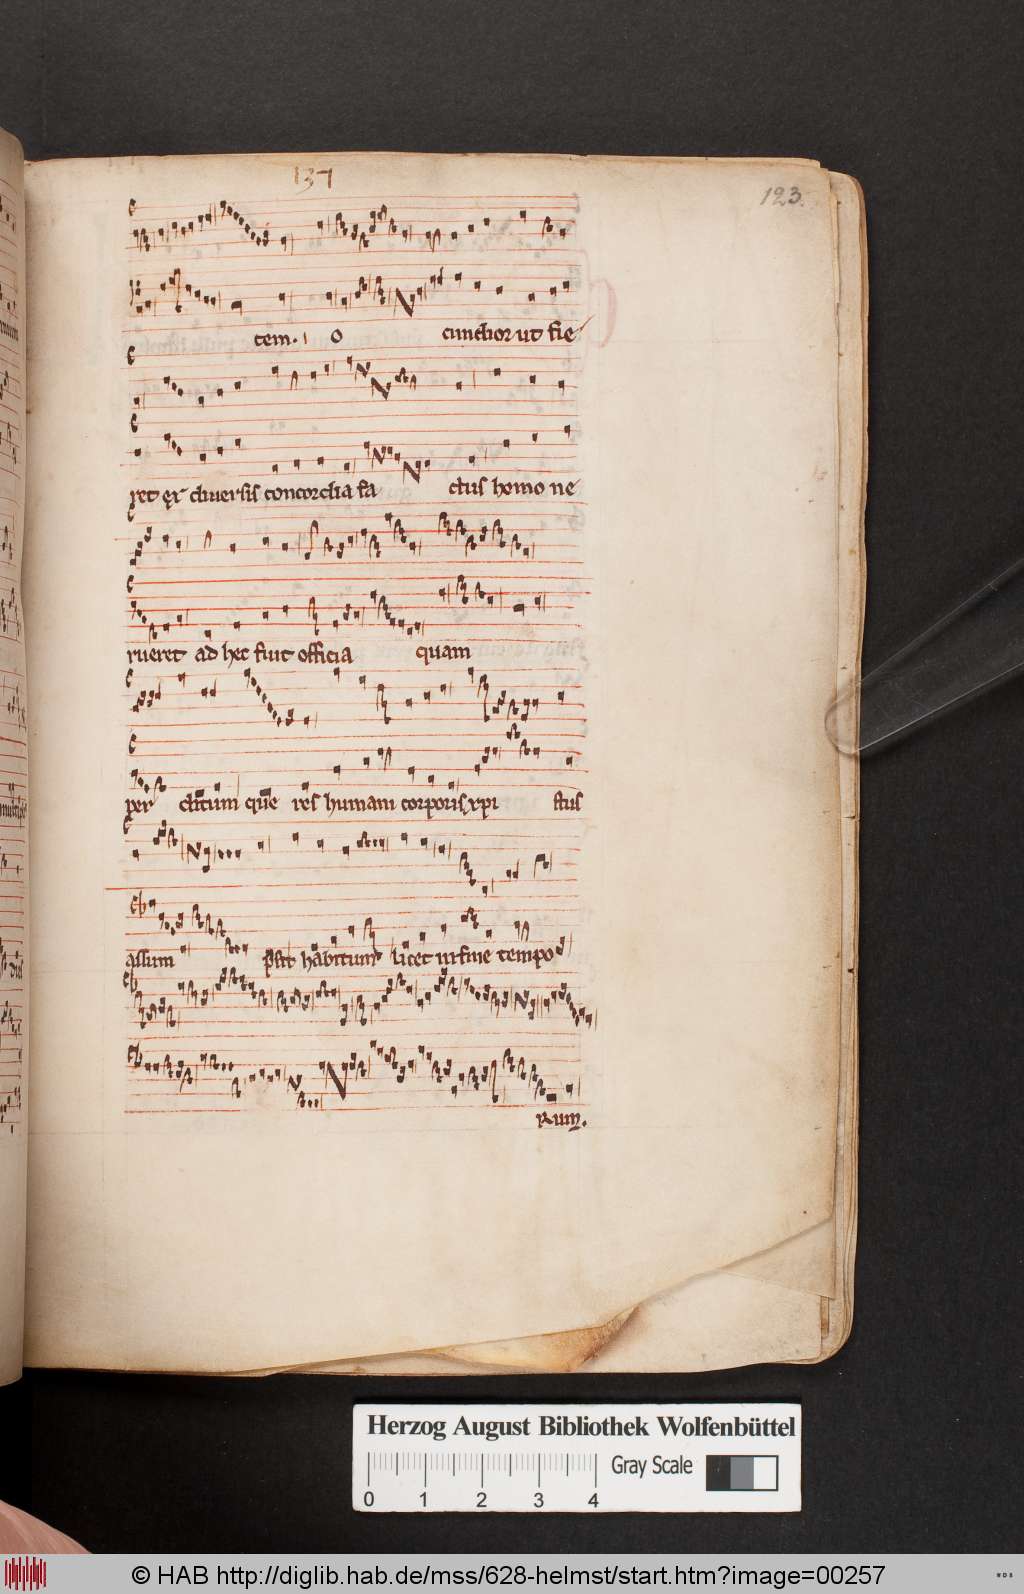 137
123.
tem. O cunctior ut fie
ret ex diuersis concordia fa ctus homo ne
rueret ad hec fiut officia quam
per ditum que res humani corporis xpi stus
assum psit habitum licet in fine tempo
rum.
Herzog August Bibliothek Wolfenbüttel
Gray Scale
0 1 2 3 4
© HAB http://diglib.hab.de/mss/628-helmst/start.htm?image=00257